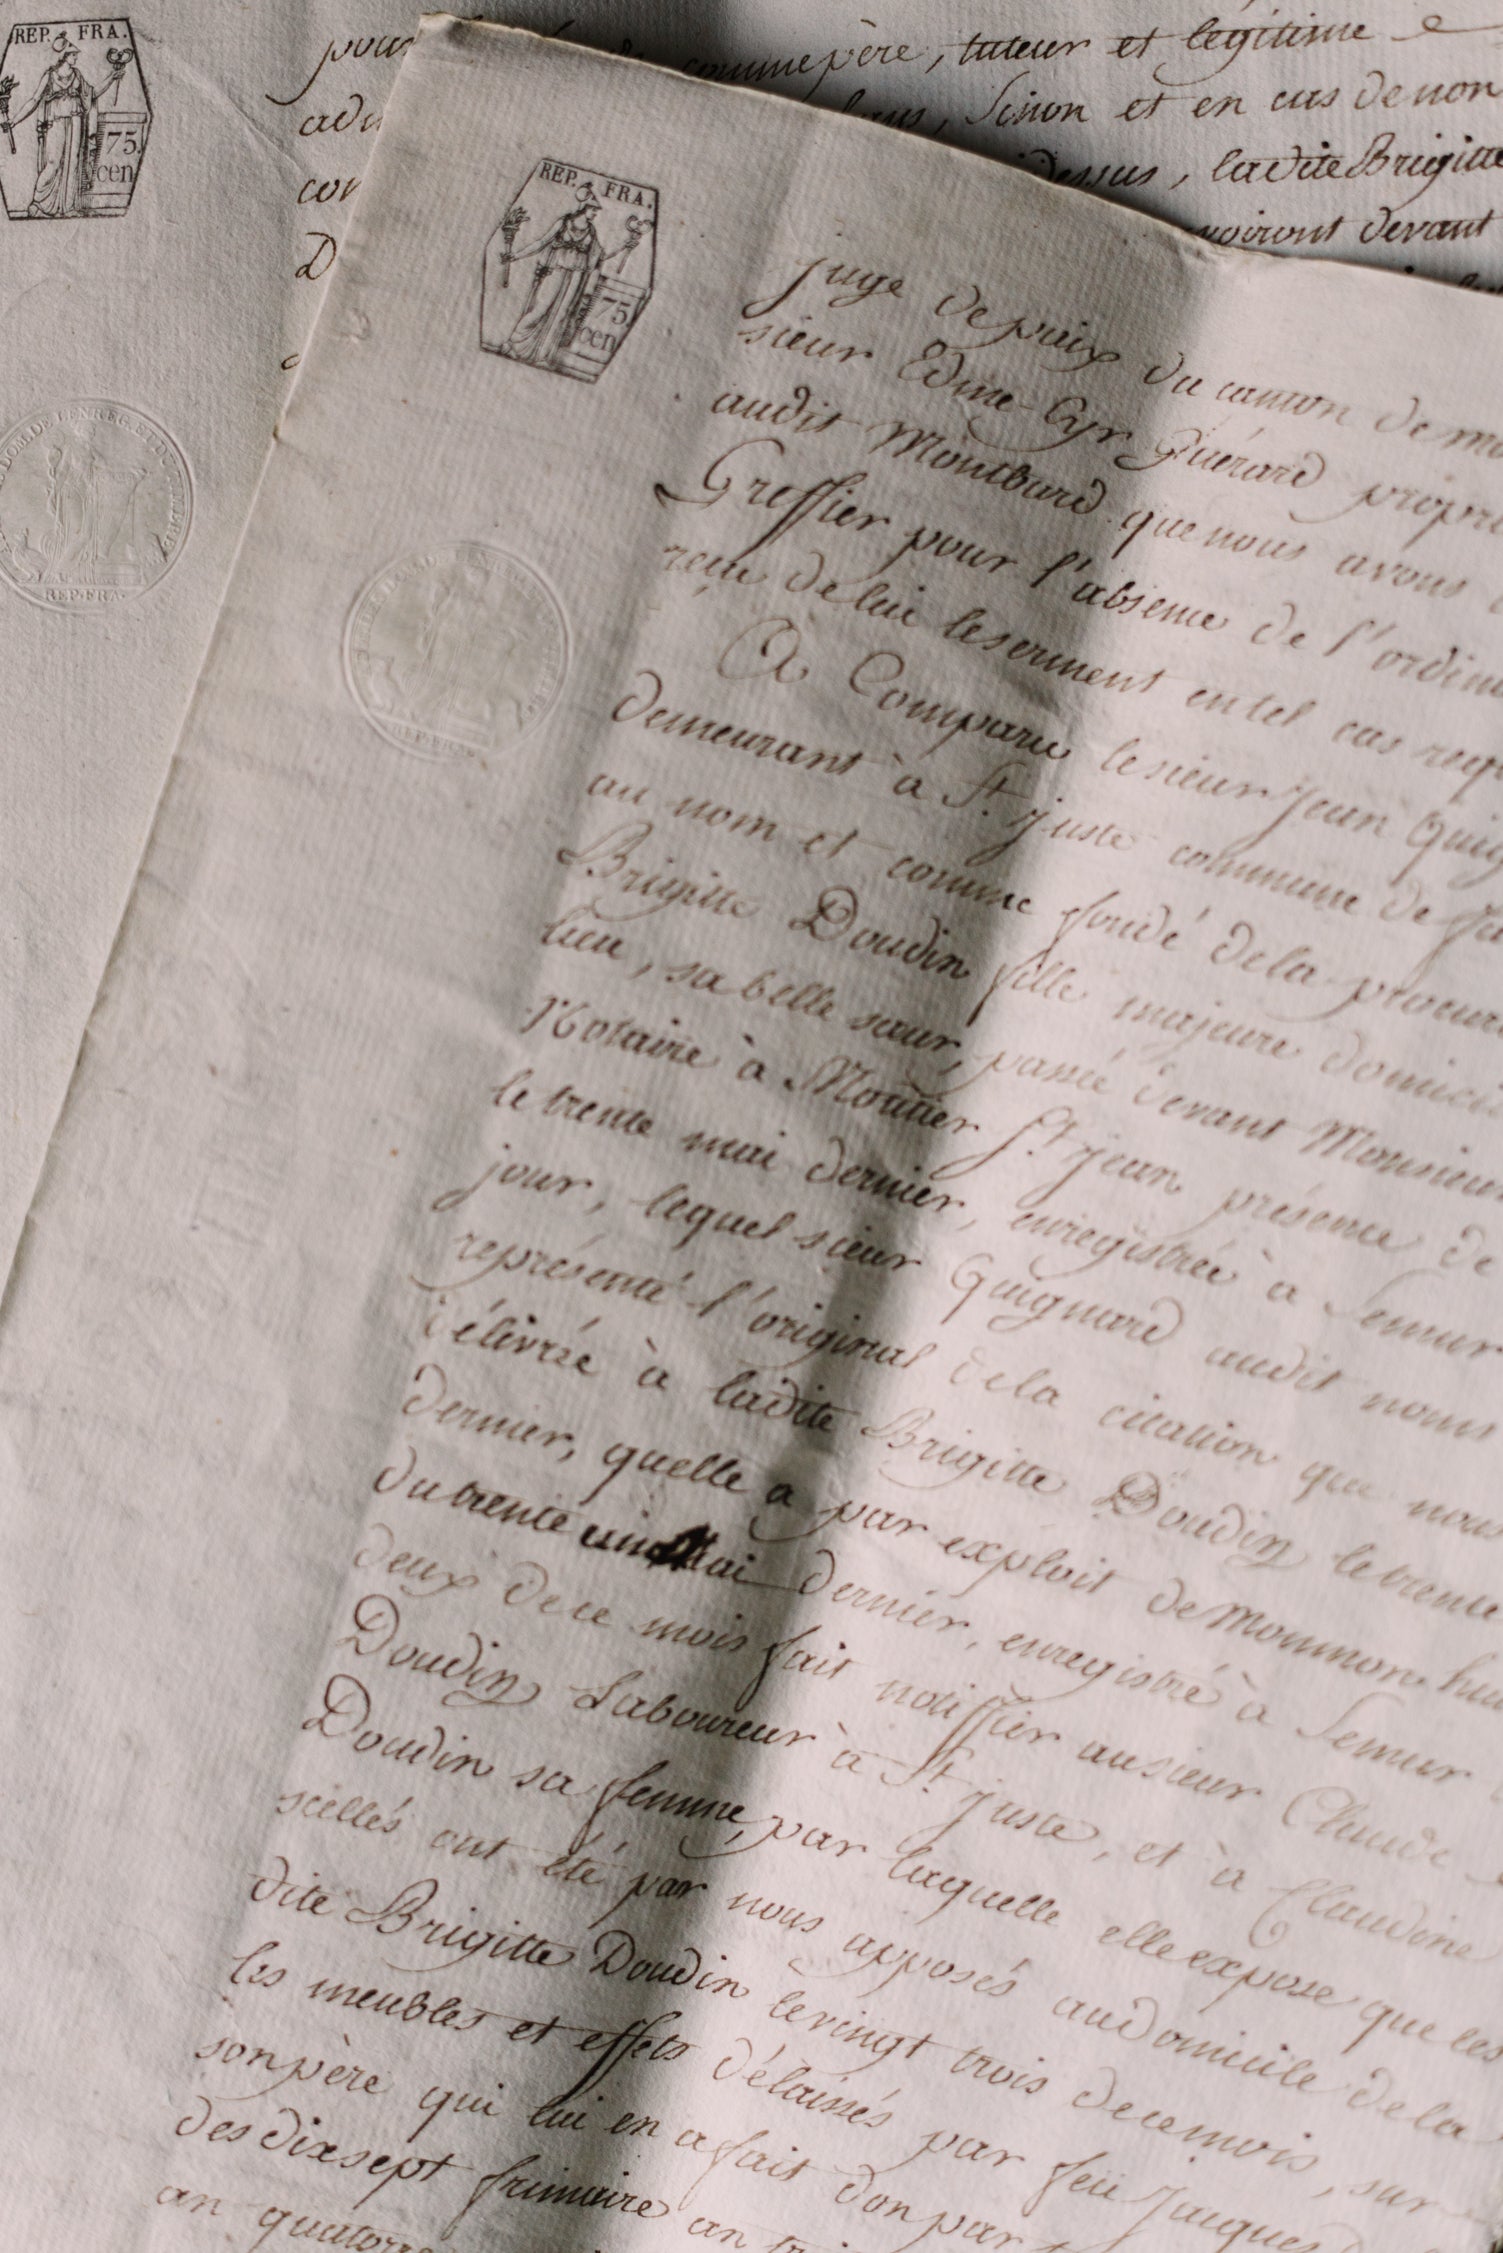 REP. FRA.
75.
cen
DOM. DE L'ENREG. ET DU
REP. FRA.
pour
comme père, tuteur et légitime
adm
Sinon et en cas de non
con
dessus, ladite Brigitte
D
devant
REP. FRA.
75.
cen
REP. FRA.
juge de paix du canton de mo
sieur Edme-Cyr Guérard propri
audit Montbard que nous avons
Greffier pour l'absence de l'ordin
reçu de lui le serment en tel cas requ
A Comparu le sieur Jean Guig
demeurant à St. Juste commune de
au nom et comme fondé de la procur
Brigitte Doudin fille majeure domici
lieu, sa belle sœur, passée devant Monsieur
Notaire à Moutier St. Jean présence de
le trente mai dernier, enregistrée à Semur
jour, lequel sieur Guignard audit nom
représenté l'original de la citation que nous
délivrée à ladite Brigitte Doudin le trente
dernier, quelle a par exploit de Monmon hui
du trente un Mai dernier, enregistré à Semur
deux de ce mois fait notiffier au sieur Claude
Doudin Laboureur à St. Juste, et à Claudine
Doudin sa femme, par laquelle elle expose que les
scellés ont été par nous apposés au domicile de la
dite Brigitte Doudin le vingt trois de ce mois, sur
les meubles et effets délaissés par feu Jacques
son père qui lui en a fait don par
des dix sept frimaire an
an quatorze